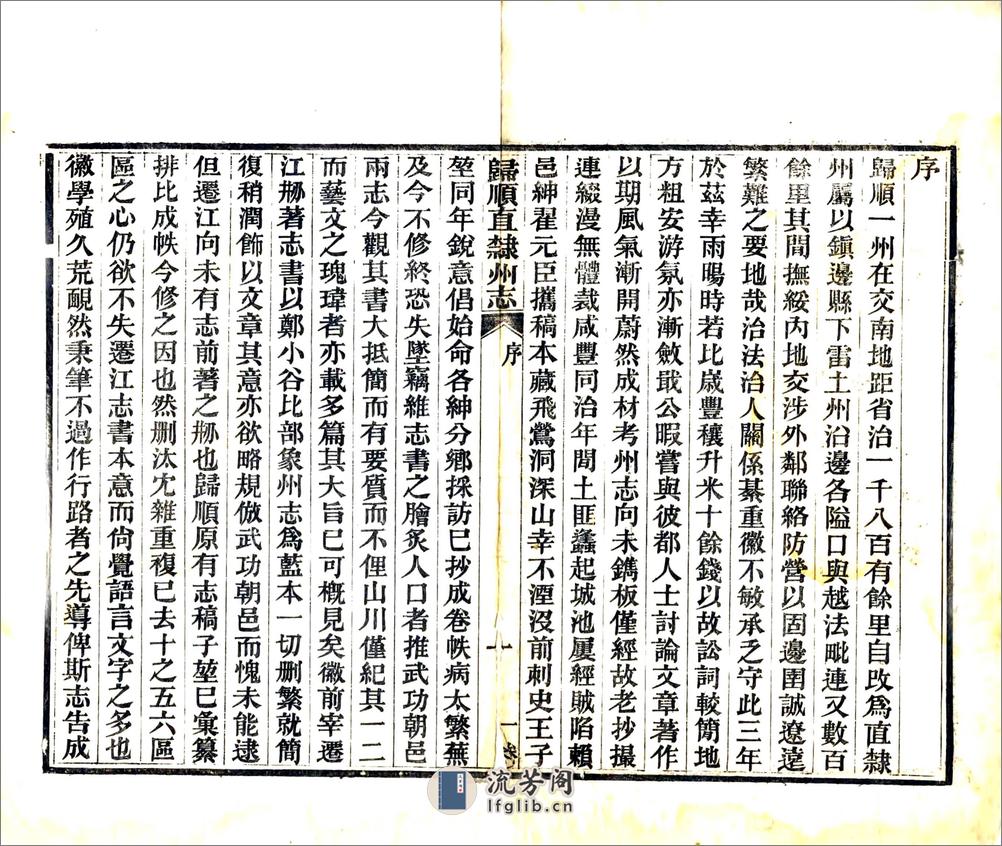 序
歸順一州在交南地距省治一千八百有餘里自改爲直隸
州屬以鎭邊縣下雷土州沿邊各隘口與越法毗連又數百
餘里其間撫綏內地交涉外鄰聯絡防營以固邊圉誠遼遠
繁難之要地哉治法治人關係綦重徽不敏承乏守此三年
於茲幸雨暘時若比歲豐穰升米十餘錢以故訟詞較簡地
方粗安游氛亦漸斂戢公暇嘗與彼都人士討論文章著作
以期風氣漸開蔚然成材考州志向未鐫板僅經故老抄撮
連綴漫無體裁咸豐同治年間土匪蠭起城池屢經賊陷賴
邑紳翟元臣攜稿本藏飛鶯洞深山幸不湮沒前刺史王子
歸順直隸州志 序 一
堃同年銳意倡始命各紳分鄉採訪巳抄成卷帙病太繁蕪
及今不修終恐失墜竊維志書之膾炙人口者推武功朝邑
兩志今觀其書大抵簡而有要質而不俚山川僅紀其一二
而藝文之瑰瑋者亦載多篇其大旨已可概見矣徽前宰遷
江刱著志書以鄭小谷比部象州志爲藍本一切删繁就簡
復稍潤飾以文章其意亦欲略規倣武功朝邑而愧未能逮
但遷江向未有志前著之刱也歸順原有志稿子堃巳彙纂
排比成帙今修之因也然删汰冗雜重複巳去十之五六區
區之心仍欲不失遷江志書本意而尙覺語言文字之多也
徽學殖久荒覥然秉筆不過作行路者之先導俾斯志告成
流芳阁
lfglib.cn